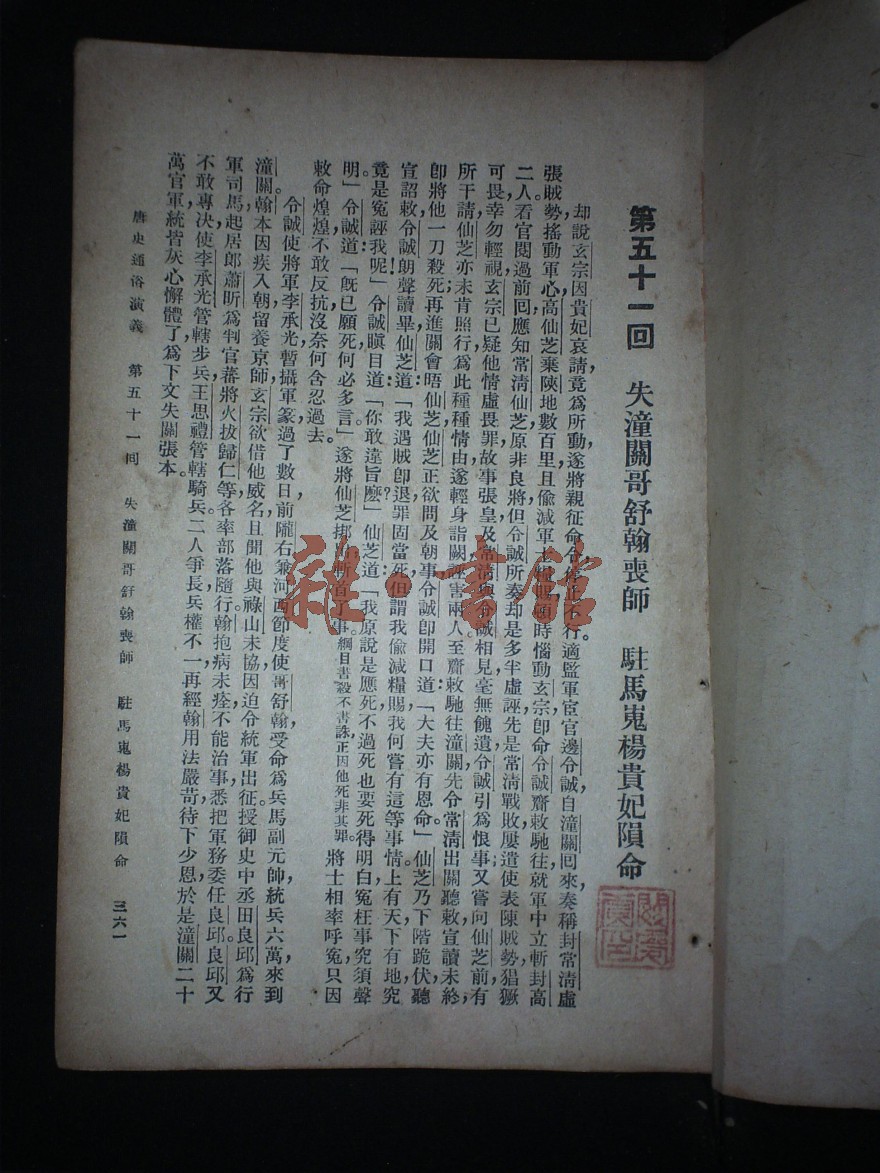 第五十一回　失潼關哥舒翰喪師　駐馬嵬楊貴妃隕命
却說玄宗因貴妃哀請，竟爲所動，遂將親征命令，停止不行。適監軍宦官邊令誠，自潼關回來，奏稱封常清虛
張賊勢，搖動軍心，高仙芝棄陝地數百里，且偷減軍士糧賜，頓時惱動玄宗，即命令誠齎敕，馳往就軍中立斬封高
二人。看官閱過前回，應知常清仙芝，原非良將，但令誠所奏，却是多半虛誣，先是常清戰敗，屢遣使表陳賊勢猖獗
可畏，幸勿輕視，玄宗已疑他情虛畏罪，故事張皇，及常清與令誠相見，毫無餽遺，令誠引爲恨事，又嘗向仙芝前，有
所干請，仙芝亦未肯照行，爲此種種情由，遂輕身詣闕，誣害兩人。至齎敕馳往潼關，先令常清出關聽敕，宣讀未終，
卽將他一刀殺死，再進關會晤仙芝，仙芝正欲問及朝事，令誠卽開口道：「大夫亦有恩命。」仙芝乃下階跪伏，聽
宣詔敕，令誠朗聲讀畢，仙芝道：「我遇賊卽退，罪固當死，但謂我偷減糧賜，我何嘗有這等事情，上有天，下有地，究
竟是冤誣我呢！」令誠瞋目道：「你敢違旨麼？」仙芝道：「我原說是應死，不過死也要死得明白，冤枉事究須聲
明。」令誠道：「旣已願死，何必多言。」遂將仙芝綁出，斬首了事。綱目書殺不書誅，正因他死非其罪。將士相率呼冤，只因
敕命煌煌，不敢反抗，沒奈何含忍過去。
令誠使將軍李承光，暫攝軍篆，過了數日，前隴右兼河西節度使哥舒翰，受命爲兵馬副元帥，統兵六萬，來到
潼關。翰本因疾入朝，留養京師，玄宗欲借他威名，且聞他與祿山未協，因迫令統軍出征，授御史中丞田良邱爲行
軍司馬，起居郎蕭昕爲判官，蕃將火拔歸仁等，各率部落隨行，翰抱病未痊，不能治事，悉把軍務委任良邱。良邱又
不敢專決，使李承光管轄步兵，王思禮管轄騎兵。二人爭長，兵權不一，再經翰用法嚴苛，待下少恩，於是潼關二十
萬官軍，統皆灰心懈體了。爲下文失關張本。
唐史通俗演義　第五十一回　失潼關哥舒翰喪師　駐馬嵬楊貴妃隕命　三六一
雜·書館